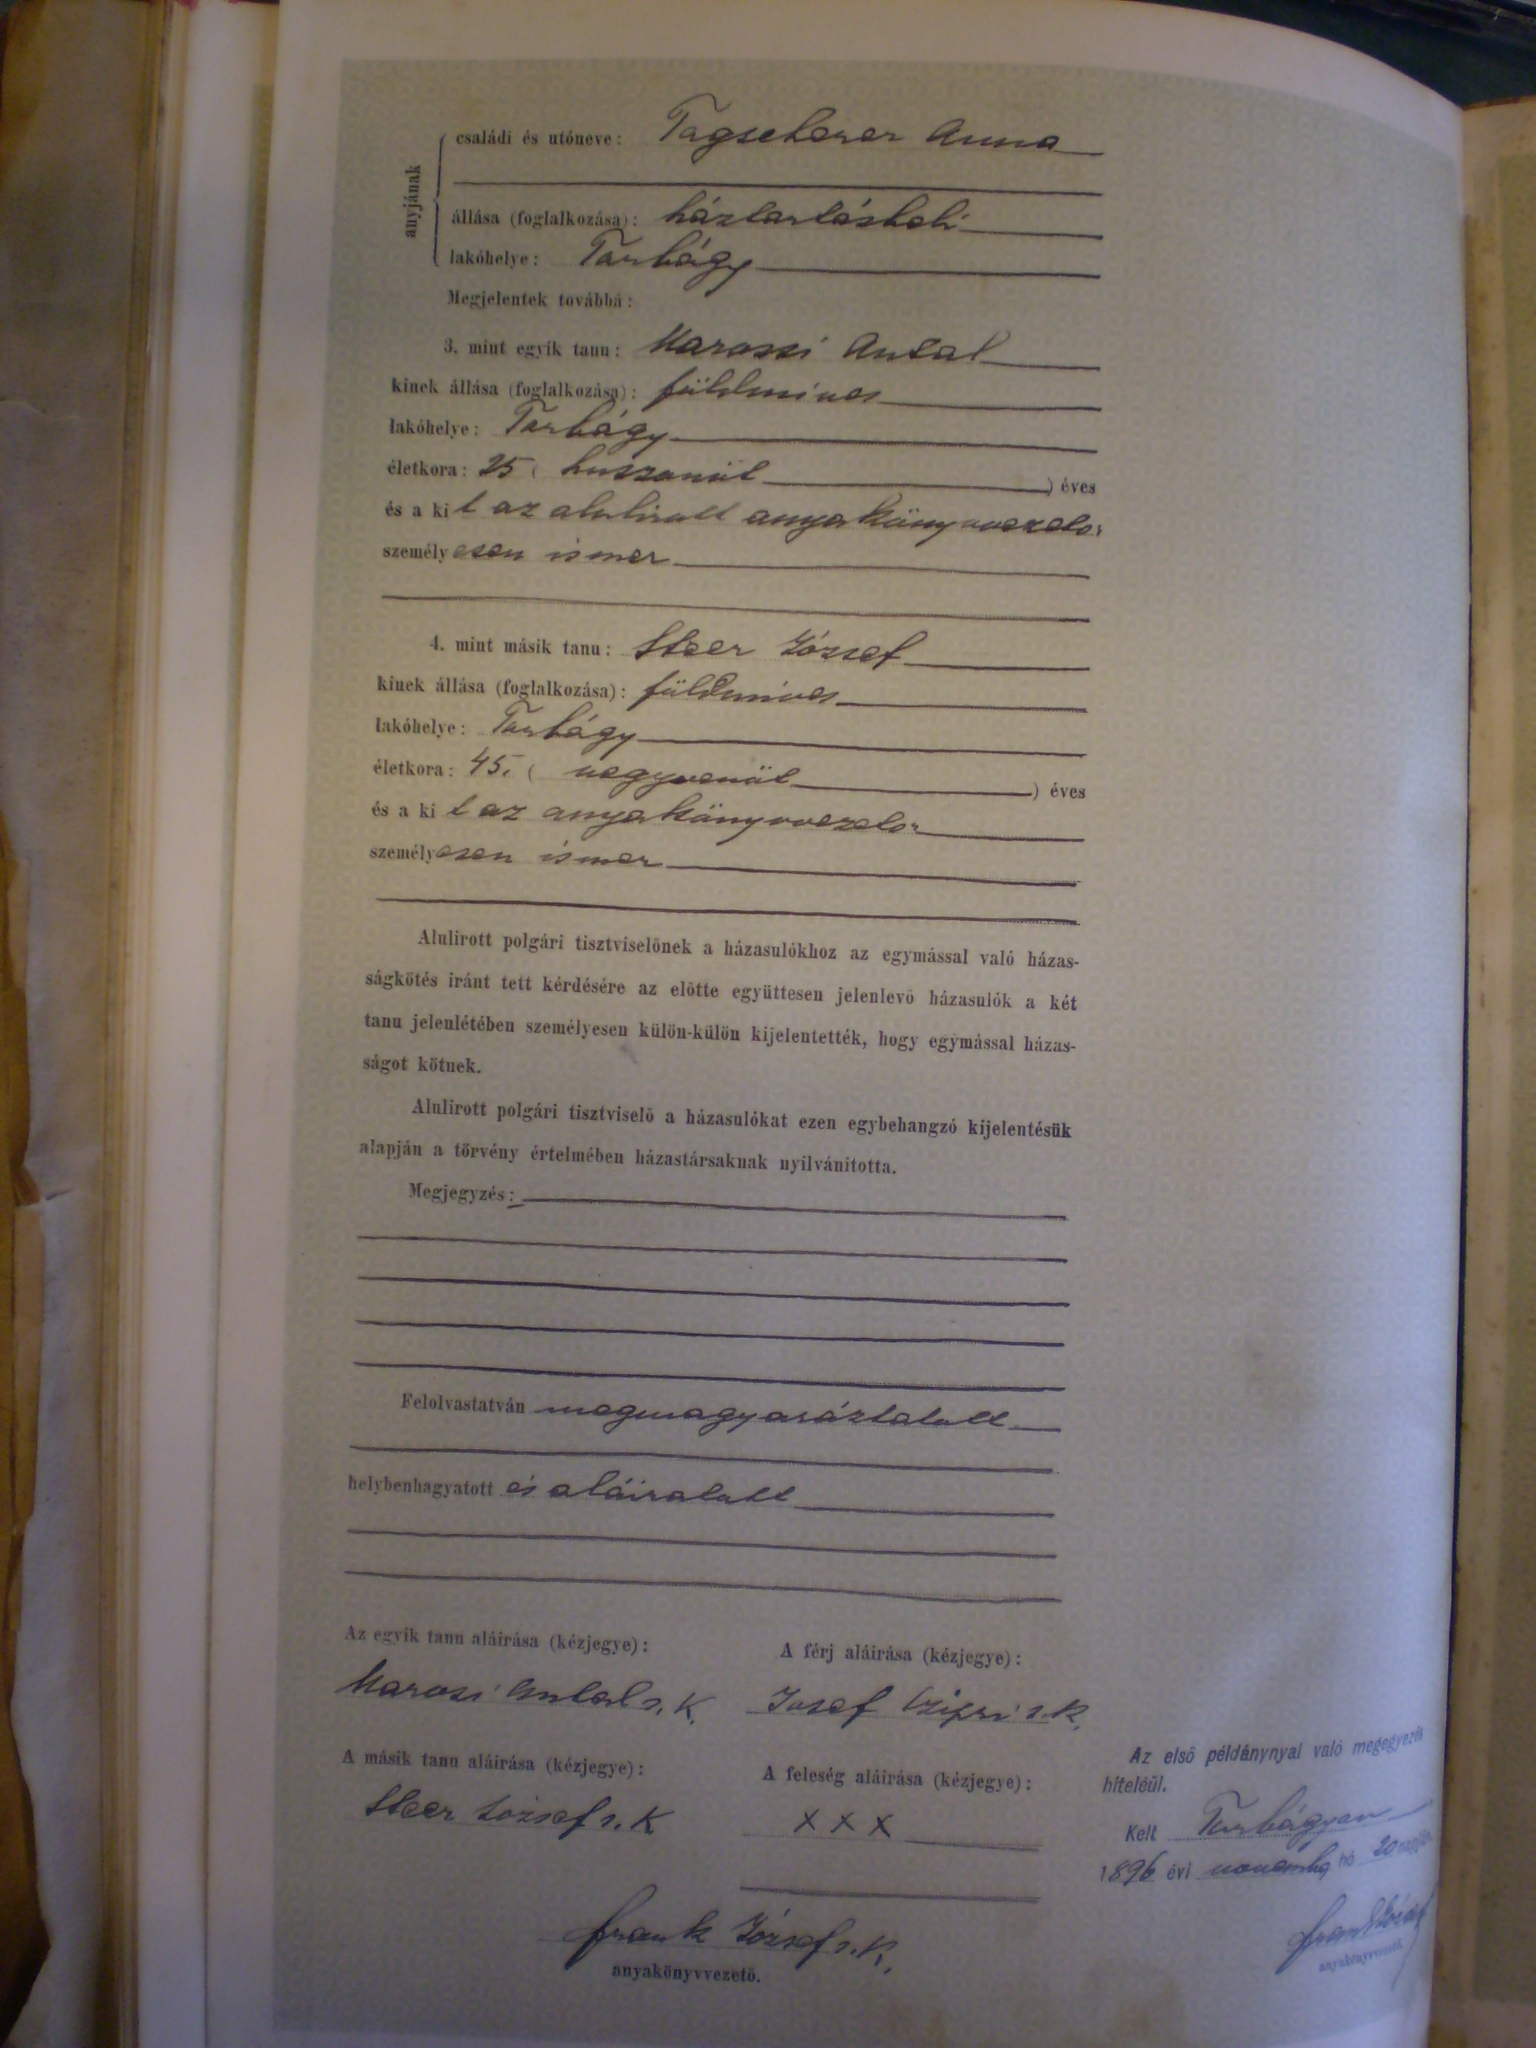 anyjának
családi és utóneve: Tagscherer Anna
állása (foglalkozása): háztartásbeli
lakóhelye: Torbágy
Megjelentek továbbá:
3. mint egyik tanu: Marossi Antal
kinek állása (foglalkozása): földmives
lakóhelye: Torbágy
életkora: 25 (huszonöt) éves
és a kit az alulirott anyakönyvvezető
személyesen ismer
4. mint másik tanu: Steer József
kinek állása (foglalkozása): földmives
lakóhelye: Torbágy
életkora: 45. (negyvenöt) éves
és a kit az anyakönyvvezető
személyesen ismer
Alulirott polgári tisztviselőnek a házasulókhoz az egymással való házas-
ságkötés iránt tett kérdésére az előtte együttesen jelenlevő házasulók a két
tanu jelenlétében személyesen külön-külön kijelentették, hogy egymással házas-
ságot kötnek.
Alulirott polgári tisztviselő a házasulókat ezen egybehangzó kijelentésük
alapján a törvény értelmében házastársaknak nyilvánitotta.
Megjegyzés:
Felolvastatván megmagyaráztatott
helybenhagyatott és aláiratott
Az egyik tanu aláirása (kézjegye):
A férj aláirása (kézjegye):
Marosi Antal s. k.
Josef s. k.
A másik tanu aláirása (kézjegye):
A feleség aláirása (kézjegye):
Steer József s. k
X X X
Frank József s. k.
anyakönyvvezető.
Az első példánynyal való megegyezés
hiteléül.
Kelt Torbágyon
1896 évi november hó 20 napján
Frank József
anyakönyvvezető